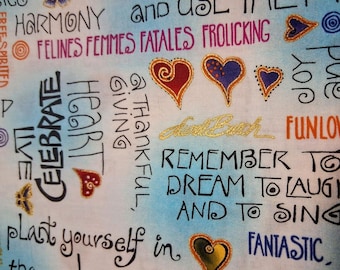 HARMONY
and USE THEY
FREE SPIRITED
FELINES FEMMES FATALES FROLICKING
JOY
and
CELEBRATE
LIVE
HEART
A THANKFUL,
GIVING
Laurel Burch
FUNLOV
REMEMBER TO
DREAM TO LAUGH
AND TO SING
plant yourself in
FANTASTIC,